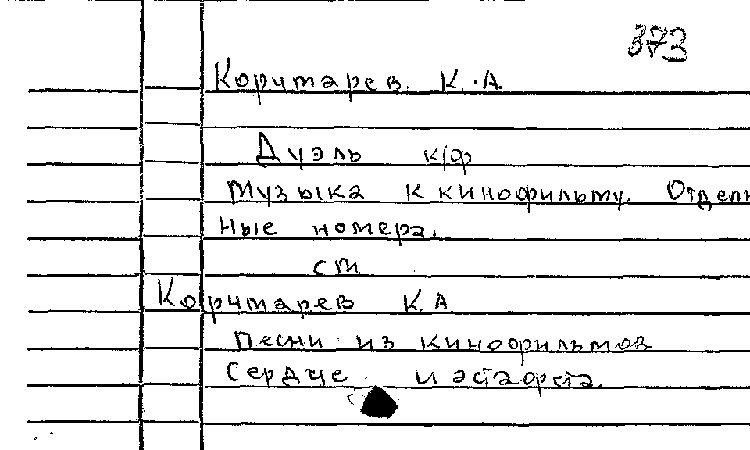 373
Корчмарев. К.А.
Дуэль к/ф
Музыка к кинофильму. Отдель
ные номера.
ст
Корчмарев К.А
Песни из кинофильмов
Сердце и эстафета.